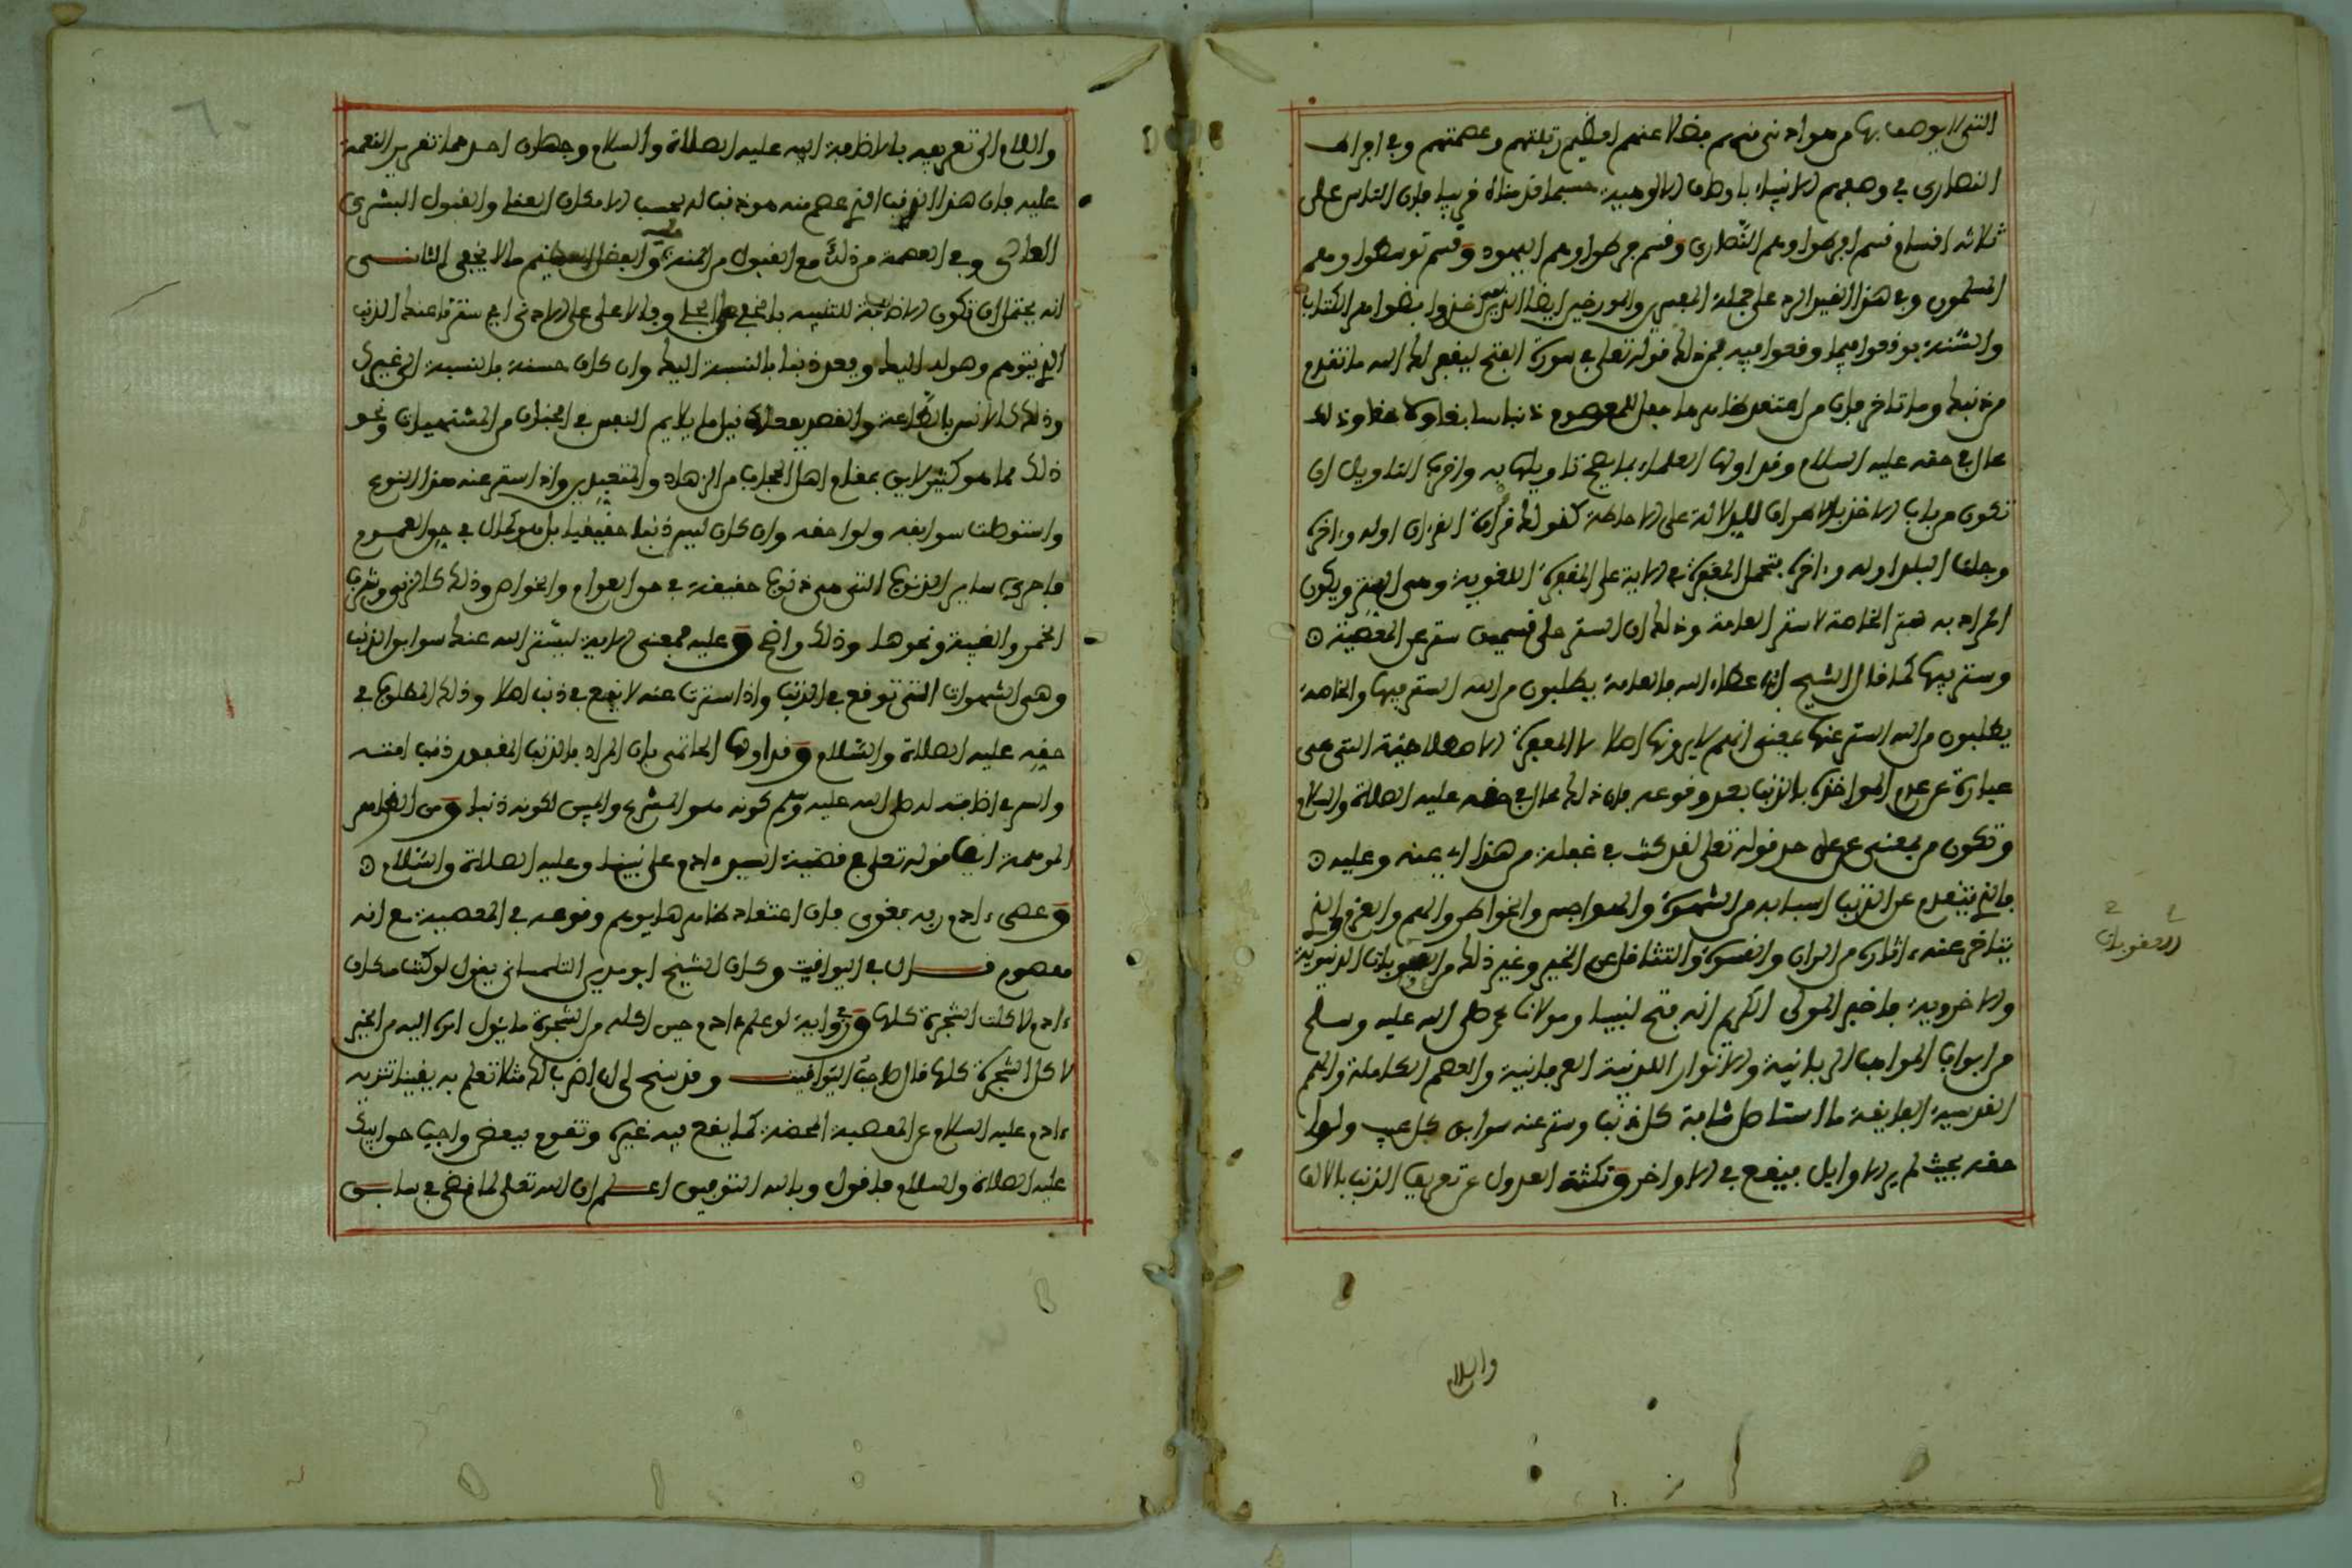 التي لا يوصف بها من هو ادنى منهم فضلا عنهم لعظيم رتبتهم وعصمتهم وفي اجراء
النصارى في وصفهم الانبياء باوصاف الالوهية حسبما قدمناه قريبا فان الناس على
ثلاثة اقسام قسم افرطوا وهم النصارى وقسم فرطوا وهم اليهود وقسم توسطوا وهم
المسلمون وفي هذا القيد الرد على جملة المفسرين والمورخين ايضا الذين اخذوا بظواهر الكتاب
والسنة فوقعوا فيما وقعوا فيه فمن ذلك قوله تعلى في سورة الفتح ليغفر لك الله ما تقدم
من ذنبك وما تاخر فان من اعتقد ظاهره جعل للمعصوم ذنبا سابقا ولاحقا وذلك
محال في حقه عليه السلام وقد اولها العلماء بما يصح تاويلها به واقرب التاويل ان
تكون من باب الاخذ بالاطراف للدلالة على الاحاطة كقولك قرات القرءان اوله وءاخره
وجلت البلد اوله وءاخره فتحمل المغفرة في الاية على المغفرة اللغوية وهي الستر ويكون
المراد به ستر الخاصة لا ستر العامة وذلك ان الستر على قسمين ستر عن المعصية
وستر فيها كما قال الشيخ ابن عطاء الله فالعامة يطلبون من الله الستر فيها والخاصة
يطلبون من الله الستر عنها بمعنى انهم لا يرونها اصلا لا المغفرة الاصطلاحية التي هي
عبارة عن عدم المواخذة بالذنب بعد وقوعه فان ذلك محال في حقه عليه الصلاة والسلام
وتكون من بمعنى عن على حد قوله تعلى لقد كنت في غفلة من هذا اي عنه وعليه
فالذي يتقدم عن الذنب اسبابه من الشهوة والهواجس والخواطر والهم والعزم والذي
يتاخر عنه ءاثاره من الران والقسوة والتثاقل عن الخير وغير ذلك من العقوبات الدنيوية
والاخروية فاخبر المولى الكريم انه فتح لنبينا ومولانا محمد صلى الله عليه وسلم
من ابواب المواهب الربانية والانوار اللدنية العرفانية والعصم الكاملة والهمم
القدسية الفايقة ما استاصل شافة كل ذنب وستر عنه سوابق كل عيب ولواحقه
حقه بحيث لم ير الاوايل فيقع في الاواخر ونكتة العدول عن تعريف الذنب بالالف
العقوبات
والسلام
واللام الى تعريفه بالاضافة اليه عليه الصلاة والسلام وجهان احدهما تقرير النعمة
عليه فان هذا الذنب الذي عصم منه هو ذنب له بحسب الامكان العقلي والقبول البشري
العادي وفي العصمة من ذلك مع القبول من المنة عليه والفضل العظيم ما لا يخفى الثانــــي
انه يحتمل ان تكون الاضافة للتنبيه بالاخفى على الاجلى وبالاعلى على الادنى اي سترنا عنك الذنب
الذي يتوهم وهو لديك ويعد ذنبا بالنسبة اليك وان كان حسنة بالنسبة الى غيرك
وذلك كالانس بالطاعة والقصد بفعلها نيل ما يلايم النفس في الجنان من المشتهيات ونحو
ذلك مما هو كثير لايق بمقام اهل الحجاب من الزهاد والمتعبدين واذا ستر عنه هذا النوع
واستوصلت سوابقه ولواحقه وان كان ليس ذنبا حقيقيا بل هو كمال في حق العموم
فاحرى ساير الذنوب التي هي ذنوب حقيقة في حق العوام والخواص وذلك كالزنى وشرب
الخمر والغيبة ونحوها وذلك واضح وعليه فمعنى الاية ليستر الله عنك سوابق الذنب
وهي الشهوات التي توقع في الذنب واذا سترت عنه لا يقع في ذنب اصلا وذلك المطلوب في
حقه عليه الصلاة والسلام وقد اولها الحاتمي بان المراد بالذنب المغفور ذنب امته
والسر في اضافته له صلى الله عليه وسلم كونه هو المشرع والمبين لكونه ذنبا ومن الظواهر
الموهمة ايضا قوله تعلى في قضية السيد ءادم على نبينا وعليه الصلاة والسلام
وعصى ءادم ربه فغوى فان اعتقاد ظاهرها يوهم وقوعه في المعصية مع انه
معصوم قــــال في اليواقيت وكان الشيخ ابو مدين التلمساني يقول لو كنت مكان
ءادم لاكلت الشجرة كلها وفي رواية لو علم ءادم حين اكله من الشجرة ما يئول امره اليه من الخير
لاكل الشجرة كلها قال صاحب اليواقيت وقد سنح لي ان اضرب لك مثلا تعلم به يقينا تنزيه
ءادم عليه السلام عن المعصية المحضة كما يقع فيه غيره وتقوم ببعض واجب حق ابيك
عليه الصلاة والسلام فاقول وبالله التوفيق اعـــلم ان الله تعلى لما قضى في سابـــق